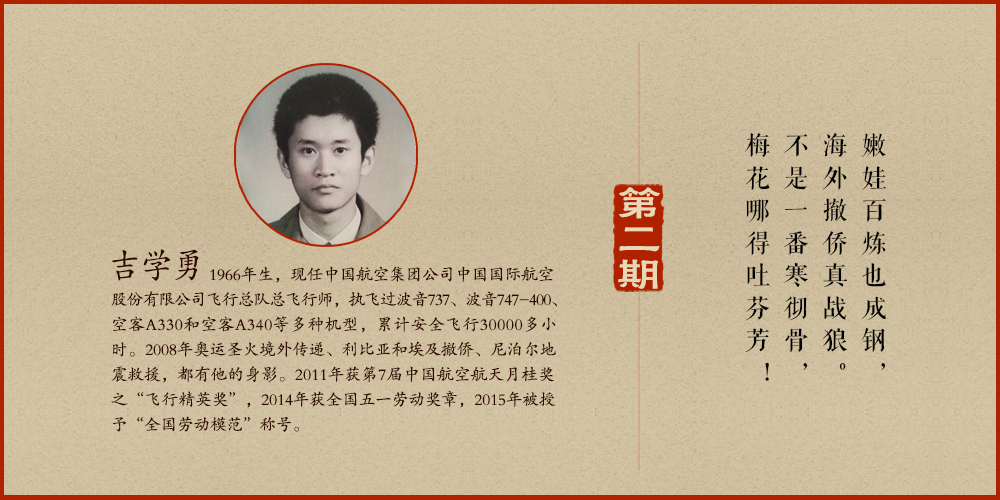 吉学勇 1966年生，现任中国航空集团公司中国国际航空
股份有限公司飞行总队总飞行师，执飞过波音737、波音747-400、
空客A330和空客A340等多种机型，累计安全飞行30000多小
时。2008年奥运圣火境外传递、利比亚和埃及撤侨、尼泊尔地
震救援，都有他的身影。2011年获第7届中国航空航天月桂奖
之“飞行精英奖”，2014年获全国五一劳动奖章，2015年被授
予“全国劳动模范”称号。
第二期
嫩娃百炼也成钢，
海外撤侨真战狼。
不是一番寒彻骨，
梅花哪得吐芬芳！